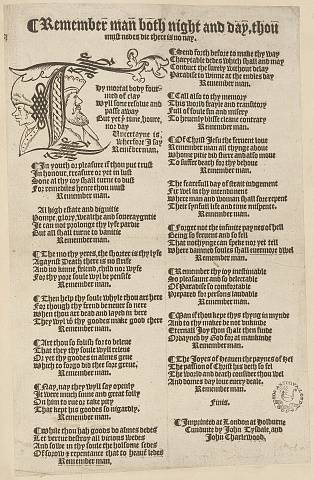 ¶Remember man both night and day, thou
must nedes die there is no nay.
Thy mortal body formed
of clay
Wyll sone resolue and
passe away
But yet ye tyme, houre,
nor day
Uncertayne is,
wherfore I say
Remember man.
¶In youth or pleasure if thou put trust
In honour, treasure or yet in lust
Sone al thy ioy shall turne to dust
For remedies hence thou must
Remember man.
Al high estate and dignitie
Pompe, glory, wealthe and soueraygntie
It can not prolonge thy lyfe pardie
But all shall turne to vanitie
Remember man.
¶The mo thy yeres, the shorter is thy lyfe
Agaynst Death there is no strife
And no hume freind, child nor wyfe
For thy pore soule wyl be pensife
Remember man.
¶Then help thy soule whyle thou art here
For though thy frend be neuer so nere
When thou art dead and layed in bere
They wyl with thy goodes make good chere
Remember man.
¶Art thou so folish for to beleue
That they thy soule wyll relieue
Or yet thy goodes in almes geue
Which to forgo did the sore greue,
Remember man.
¶Nay, nay they wyll say openly
It were much sinne and great folly
On him to rue or take pity
That kept his goodes so nigardly.
Remember man.
¶White thou hast goods do almes dedes
Let vertue destroy all vicious wedes
And solwe in thy soule the holsome sedes
Of sorow &amp; repentance that to heauen ledes
Remember man,
¶Send forth before to make thy way
Charytable dedes which shall and may
Conduct the surely without delay
Paradise to winne at the endles day
Remember man.
¶Call also to thy memory
This world frayle and transitory
Full of sinfull sin and misery
To heuenly blisse cleane contrary
Remember man.
¶Of Christ Jesu the feruent loue
Remember man all thynge aboue
Whome pitie did sturre and also moue
To suffer death for thy behoue
Remember man.
The fearefull day of straight iudgement
Fix wel in thy intendement
Where man and woman shall sore repent
Their synfull life and time mispent.
Remember man.
¶Forget not the infinite paynes of hell
Being so feruent and so fell
That nothynge can speke nor yet tell
Where damned soules shall euermore dwel
Remember man.
¶Remember thy ioy inestimable
So pleasaunt and so delectable
Of Paradise so comfortable
Prepared for persons laudable
Remember man.
¶Man if thou kepe thys thyng in mynde
And to thy maker be not vnkinde
Eternall Joy thou shalt then finde
Ordayned by God for al mankinde
Remember man.
¶The Joyes of heauen the paynes of hel
The passion of Christ his deth so fel
The world and death consider thou wel
And domes day loue euery deale.
Remember man.
Finis.
¶Imprinted at London at Holburne
Cunduite by John Tysdale, and
John Charlewood.